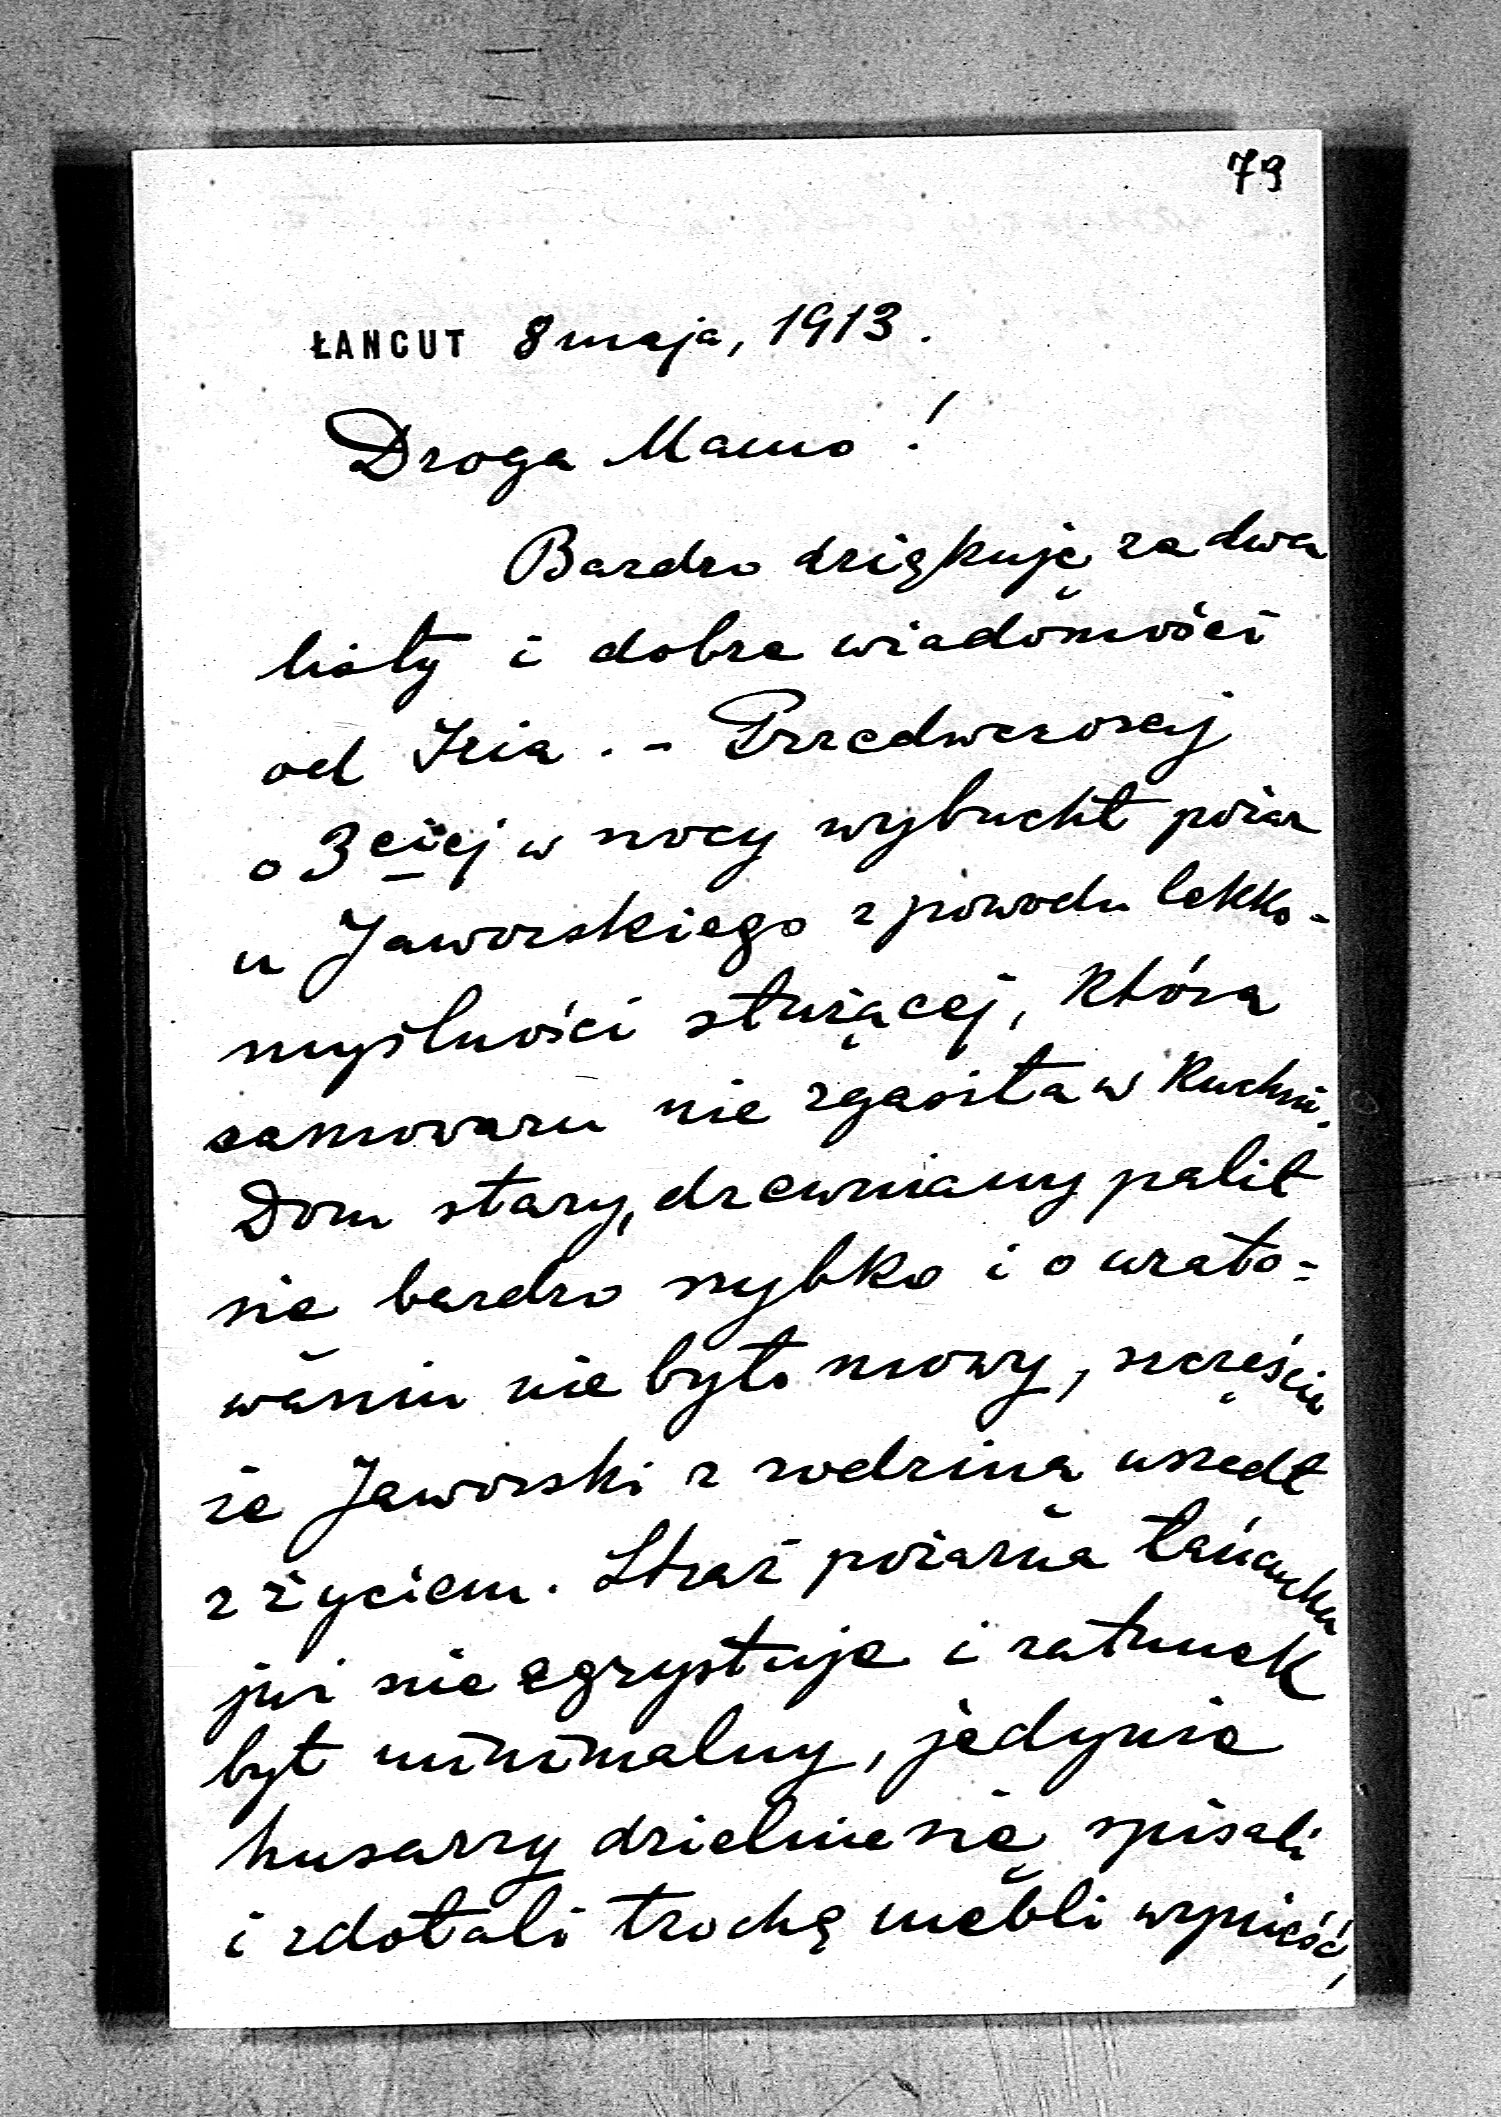 79
ŁANCUT 8 maja, 1913.
Droga Mamo!
Bardzo dziękuję za dwa
listy i dobre wiadomości
od Izia. - Przedwczoraj
o 3ciej w nocy wybuchł pożar
u Jaworskiego z powodu lekko-
myślności służącej, która
samowaru nie zgasiła w kuchni.
Dom stary, drewniany palił
się bardzo szybko i o urato=
waniu nie było mowy, szczęście
że Jaworski z rodziną uszedł
z życiem. Straż pożarna łańcucka
już nie egzystuje i ratunek
był minimalny, jedynie
husarzy dzielnie się spisali
i zdołali trochę mebli wynieść,